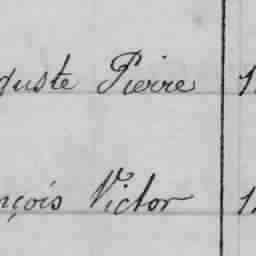 guste Pierre 1
nçois Victor 1